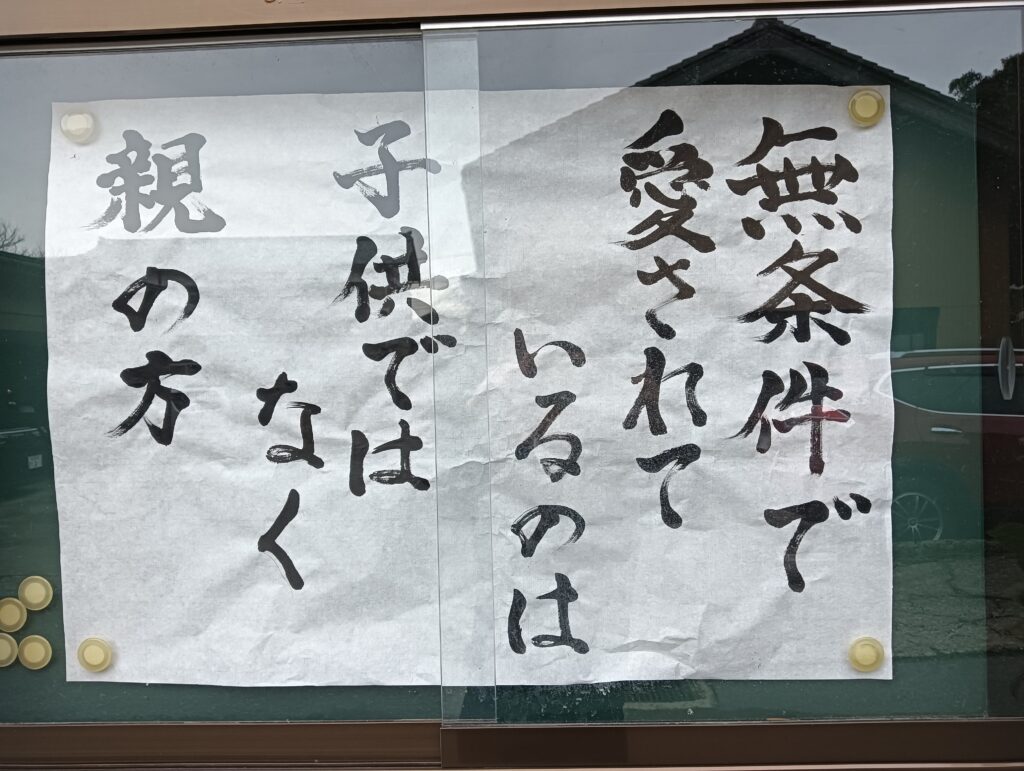 無条件で
愛されて
いるのは
子供では
なく
親の方